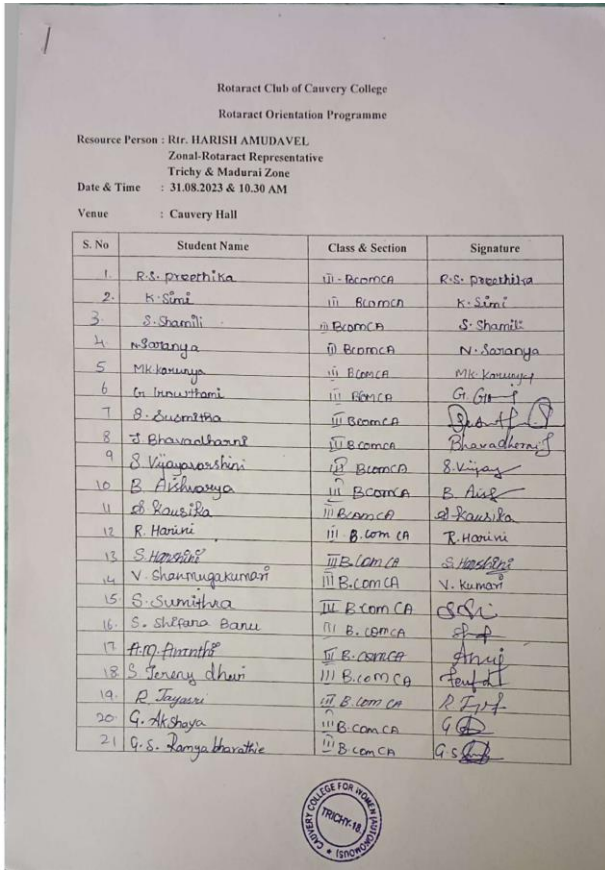 1
Rotaract Club of Cauvery College
Rotaract Orientation Programme
Resource Person : Rtr. HARISH AMUDAVEL
Zonal-Rotaract Representative
Trichy & Madurai Zone
Date & Time : 31.08.2023 & 10.30 AM
Venue : Cauvery Hall
S. No Student Name Class & Section Signature
1. R.S. preethika iii - BcomCA R.S. preethika
2. K. Simi iii BcomCA K. Simi
3. S. Shamili iii BcomCA S. Shamili
4. N. Saranya iii BcomCA N. Saranya
5 MK. Karunya iii BcomCA MK. Karunya
6 G. iii BcomCA G.
7 S. Susmitha III BcomCA
8 J. Bhavadharni III BcomCA
9 S. Vijayavarshini III BcomCA S. Vijay
10 B. Aishwarya III BcomCA B.
11 S. Kausika III BcomCA S. Kausika
12 R. Harini III - B.com CA R. Harini
13 S. Harshini III B.com CA S. Harshini
14 V. Shanmugakumari III B.com CA V. Kumari
15. S. Sumithra III B.com CA
16. S. Banu III B.comCA
17 A.M. III B.comCA
18 S III B.com CA
19. R. Jayasri III B.com CA R
20. G. Akshaya III B.com CA G
21 G.S. Ramyabharathie III B.com CA G.S
CAUVERY COLLEGE FOR WOMEN (AUTONOMOUS)
TRICHY-18.